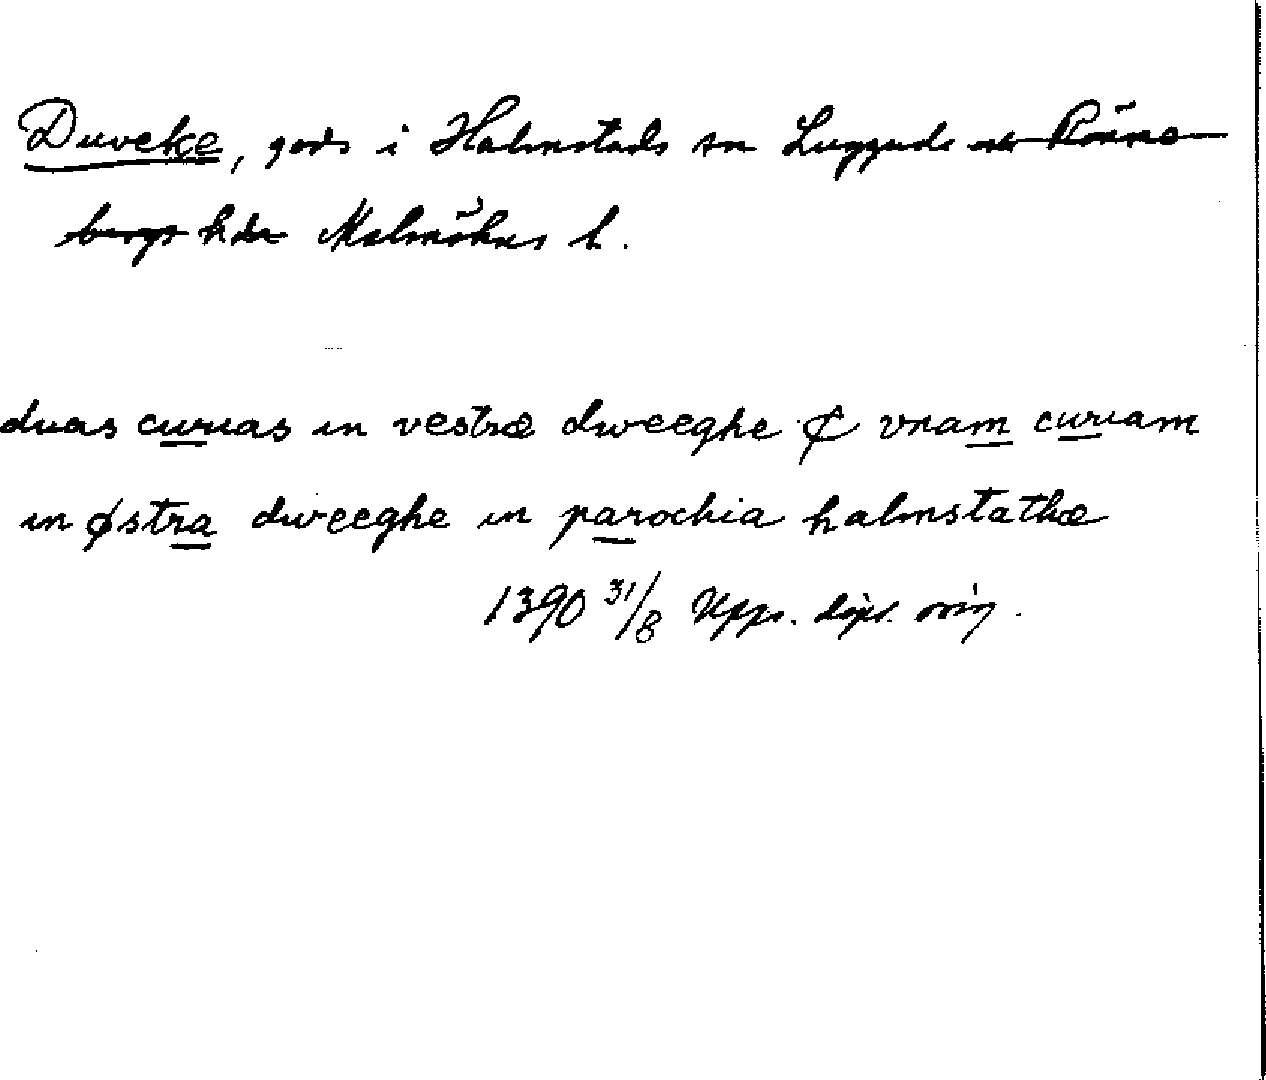 Duveke, gods i Halmstads sn Luggude och Rönne
bergs h:der Malmöhus l.
duas curias in vestræ dweeghe ₵ vnam curiam
in østra dweeghe in parochia halmstathæ
1390 31/8 Upps. dipl. orig.